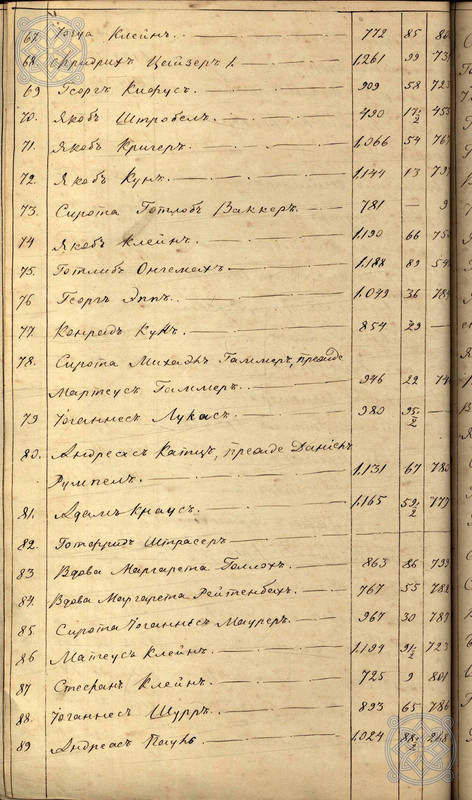 67. Клейнъ. 772 85
68. Фридрихъ Цейзеръ 1. 1,261 99 73
69 Георгъ Кнорусъ. 909 58 723
70. Якобъ Штробель. 490 17½ 455
71. Якобъ Кригеръ. 1,066 54 767
72. Якобъ Кунъ. 1,144 13 797
73. Сирота Готлобъ Ваккеръ. 781 — 9
74 Якобъ Клейнъ. 1,190 66 75
75. Готлибъ Онгемахъ 1,188 89 54
76 Георгъ Эппъ. 1,049 36 789
77 Конрадъ Кунъ. 854 29 —
78. Сирота Михаэлъ Галмеръ, прежде
Матеусъ Галмеръ. 946 22 74
79 Іоганнесъ Лукасъ. 980 95½ —
80. Андреасъ Катцъ, прежде Даніелъ
Румпель. 1,131 67 780
81. Адамъ Кнаусъ. 1,165 59½ 779
82. Готфридъ Штрасеръ
83 Вдова Маргарета Голлохъ. 863 86 799
84. Вдова Маргарета Рейтенбахъ. 767 55 782
85 Сирота Іоганнесъ Мауреръ. 967 30 787
86 Матеусъ Клейнъ. 1,194 91½ 723
87 Стефанъ Клейнъ. 725 9 801
88. Іоганнесъ Шурръ. 893 65 786
89 Андреасъ 1,024 88½ 268